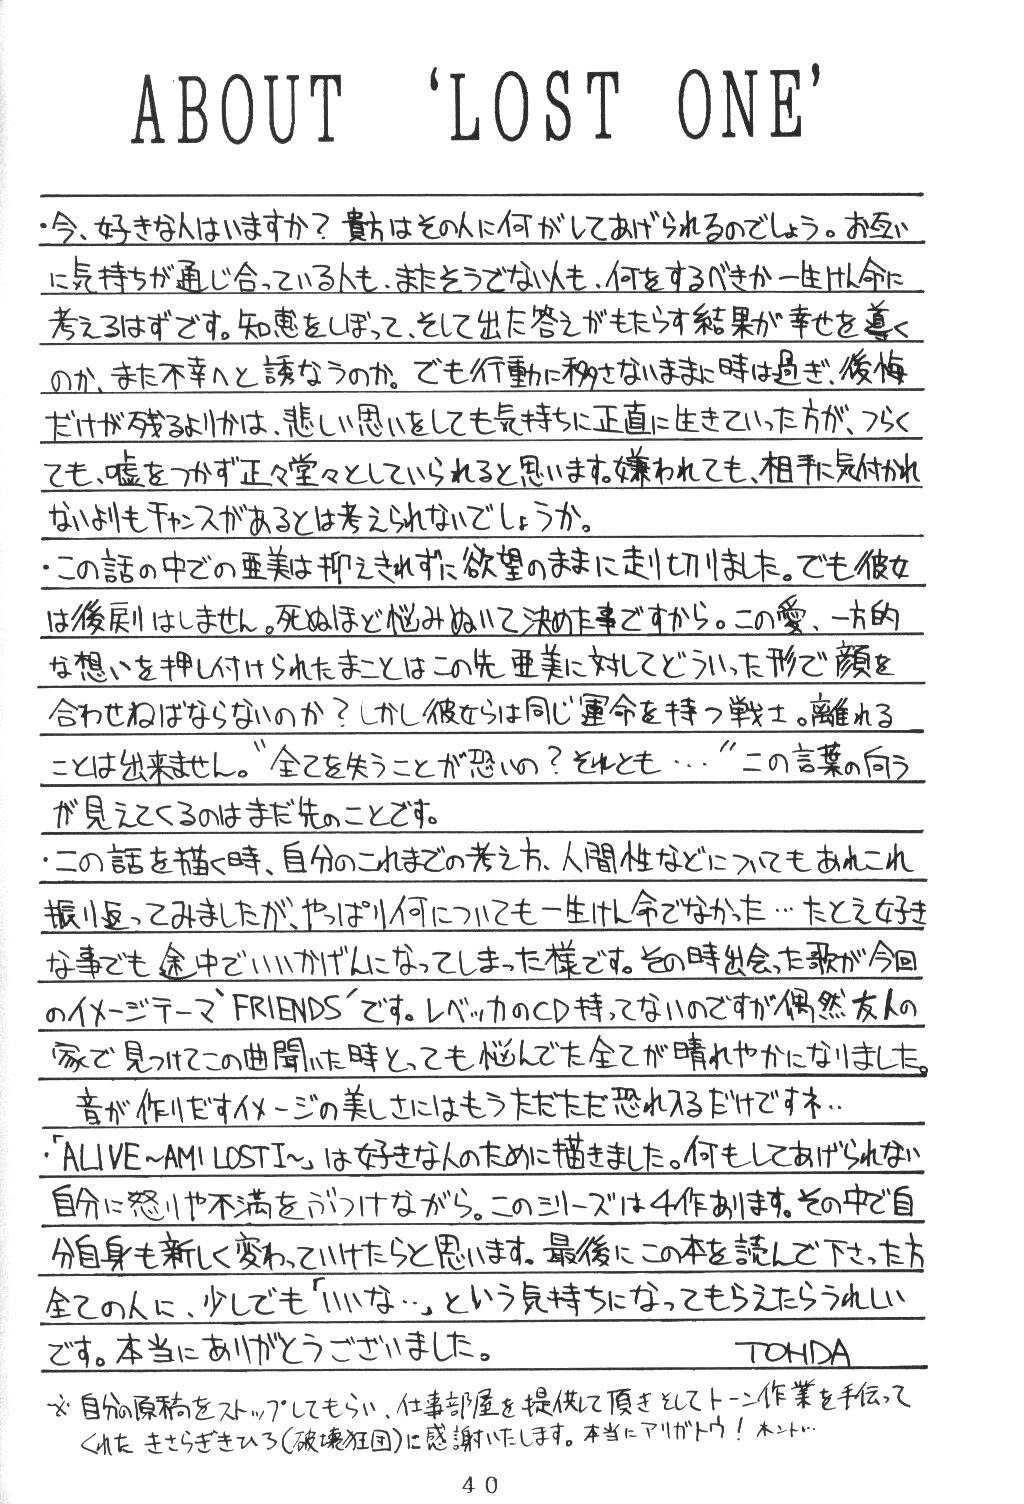 ABOUT ‘LOST ONE’
・今、好きな人はいますか？貴方はその人に何がしてあげられるのでしょう。お互い
に気持ちが通じ合っている人も、またそうでない人も、何をするべきか一生けん命に
考えるはずです。知恵をしぼって、そして出た答えがもたらす結果が幸せを導く
のか、また不幸へと誘なうのか。でも行動に移さないままに時は過ぎ、後悔
だけが残るよりかは、悲しい思いをしても気持ちに正直に生きていった方が、つらく
ても、嘘をつかず正々堂々としていられると思います。嫌われても、相手に気付かれ
ないよりもチャンスがあるとは考えられないでしょうか。
・この話の中での亜美は抑えきれずに欲望のままに走り切りました。でも彼女
は後戻りはしません。死ぬほど悩みぬいて決めた事ですから。この愛、一方的
な想いを押し付けられたまことはこの先亜美に対してどういった形で顔を
合わせねばならないのか？しかし彼女らは同じ運命を持つ戦士。離れる
ことは出来ません。“全てを失うことが恐いの？それとも・・・”この言葉の向う
が見えてくるのはまだ先のことです。
・この話を描く時、自分のこれまでの考え方、人間性などについてもあれこれ
振り返ってみましたが、やっぱり何についても一生けん命でなかった…たとえ好き
な事でも途中でいいかげんになってしまった様です。その時出会った歌が今回
のイメージテーマ‘FRIENDS’です。レベッカのCD持ってないのですが偶然友人の
家で見つけてこの曲聞いた時とっても悩んでた全てが晴れやかになりました。
音が作りだすイメージの美しさにはもうただただ恐れ入るだけですネ・・
・「ALIVE～AMI LOST I～」は好きな人のために描きました。何もしてあげられない
自分に怒りや不満をぶつけながら。このシリーズは4作あります。その中で自
分自身も新しく変わっていけたらと思います。最後にこの本を読んで下さった方
全ての人に、少しでも「いいな・・」という気持ちになってもらえたらうれしい
です。本当にありがとうございました。 TOHDA
※自分の原稿をストップしてもらい、仕事部屋を提供して頂きそしてトーン作業を手伝って
くれた きさらぎきひろ(破壊狂団)に感謝いたします。本当にアリガトウ！ホント…
40